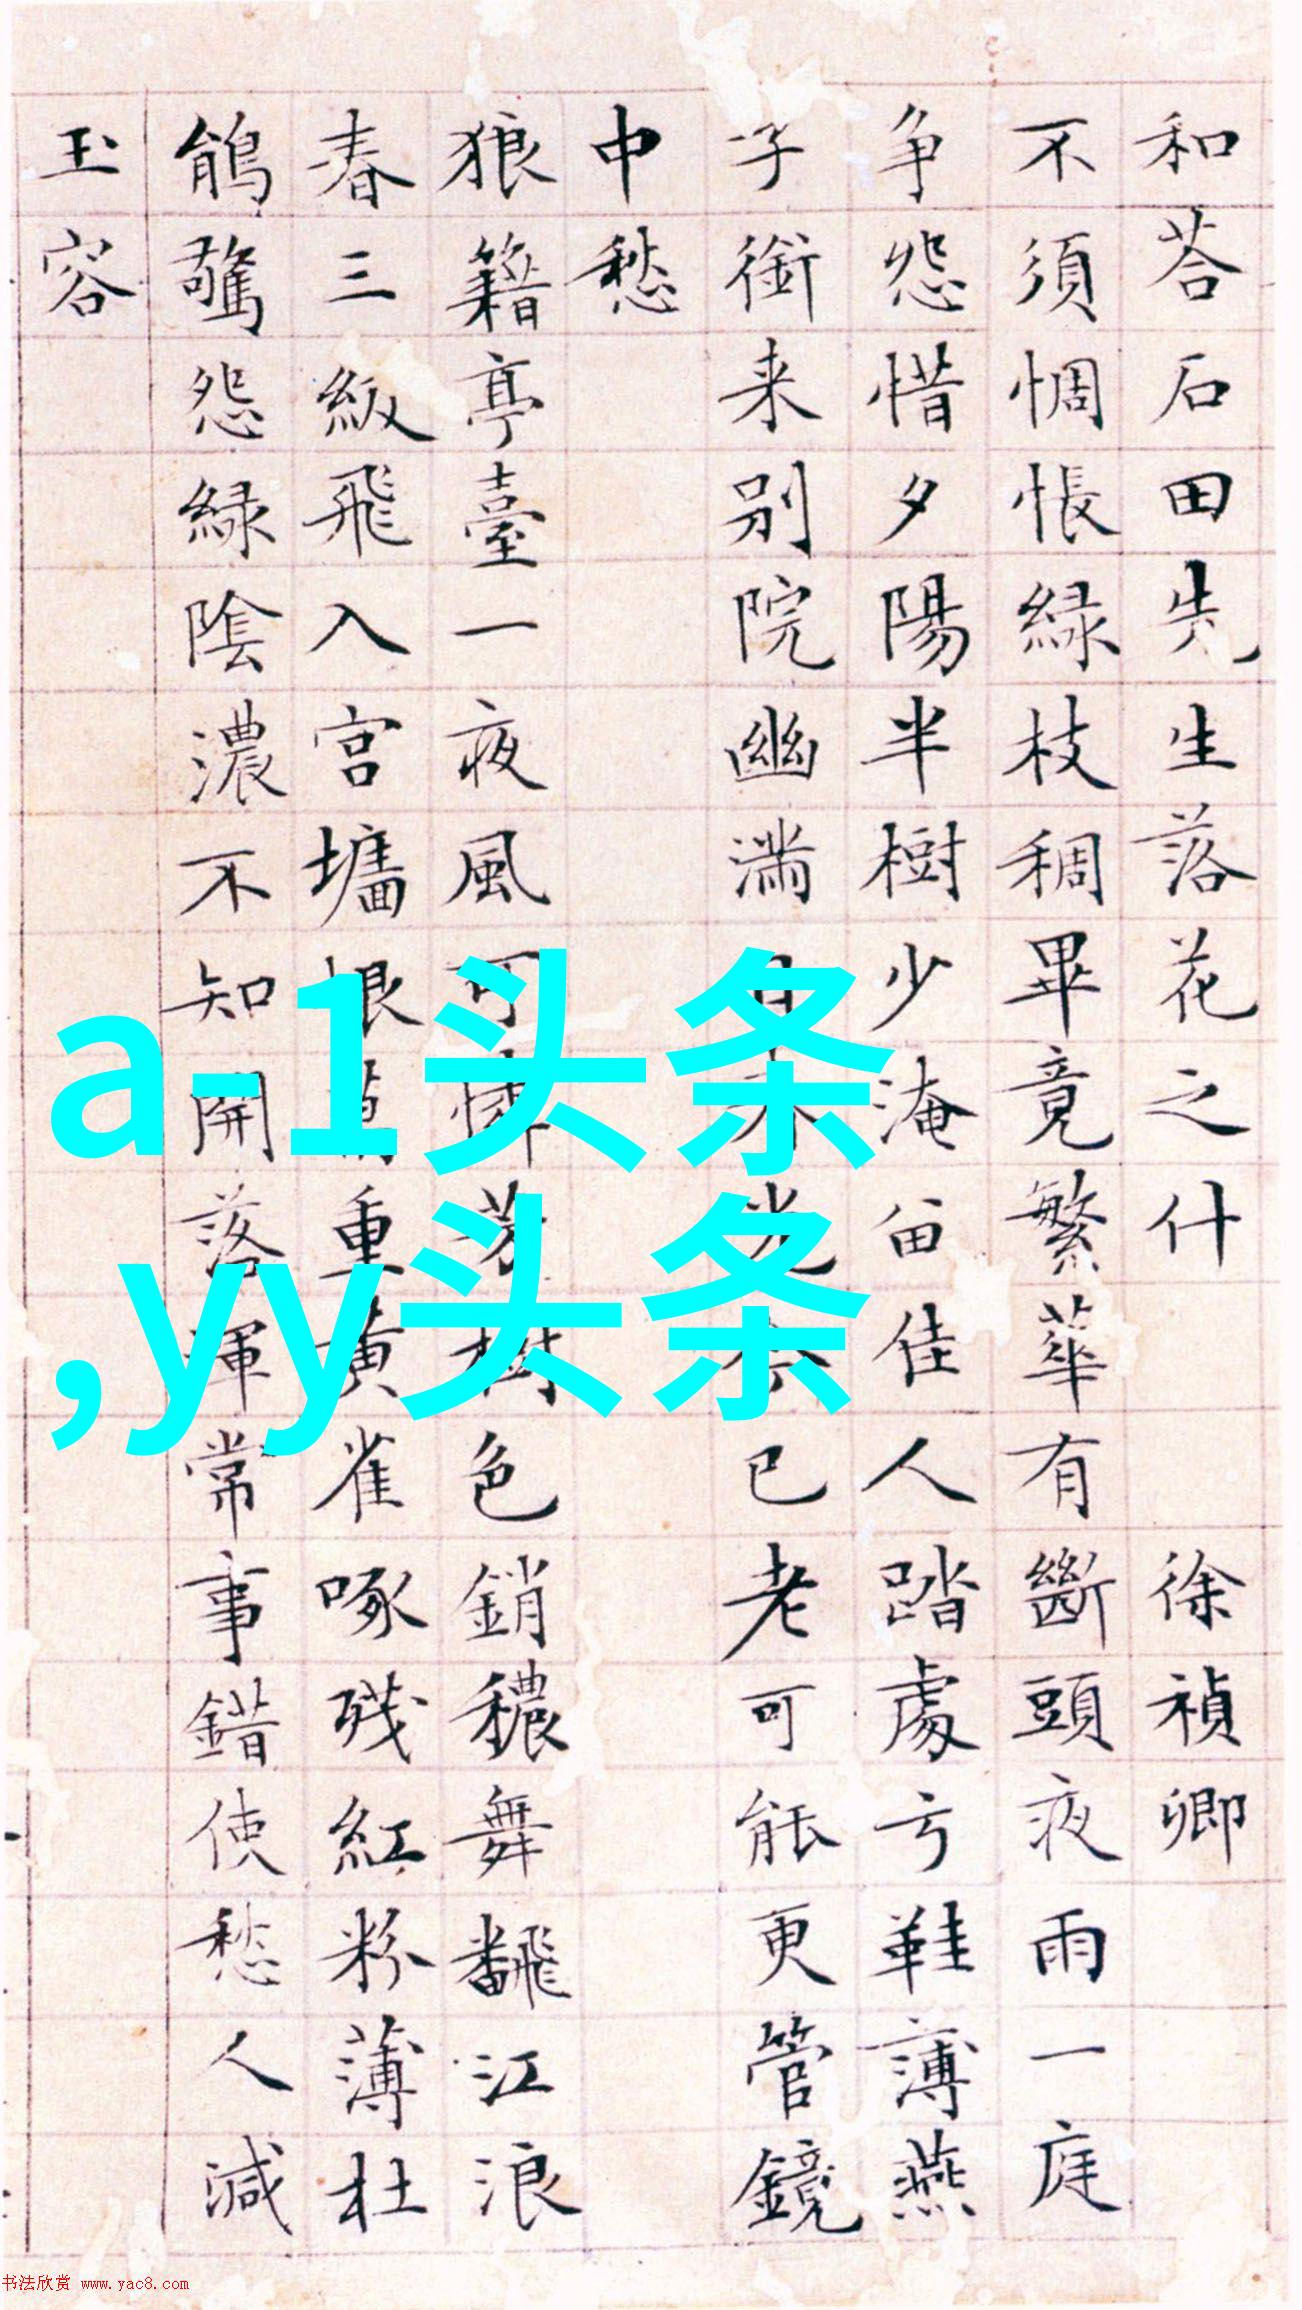 和荅石田先生落花之什 徐禎卿
不須惆悵緑枝稠畢竟繁華有斷頭夜雨一庭
争怨惜夕陽半樹少淹留佳人踏處亏鞋薄燕
子銜来别院幽滿光已老可能更管鏡
中愁
狼籍亭臺一夜風可憐芳樹色銷穠舞飜江浪
春三級飛入宫墻恨萬重黄雀啄殘紅粉薄杜
鵑驚怨緑陰濃不知開落渾常事錯使愁人減
玉容
a-1头条
,yy头条
书法欣赏 www.yac8.com